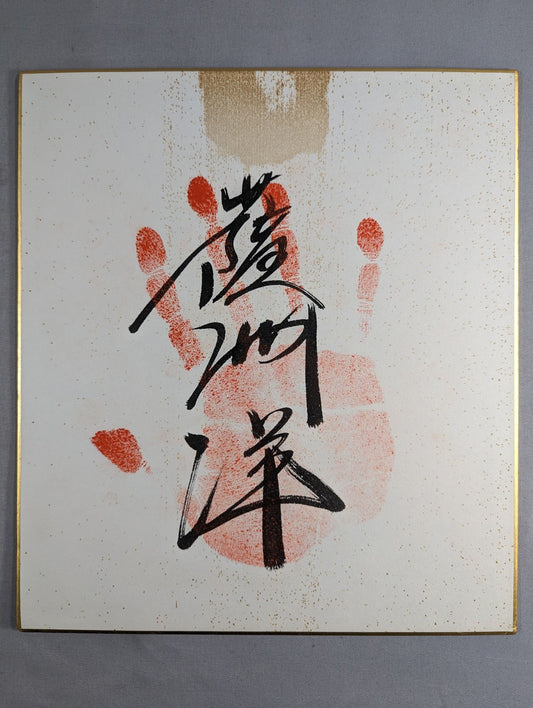 薩洲洋